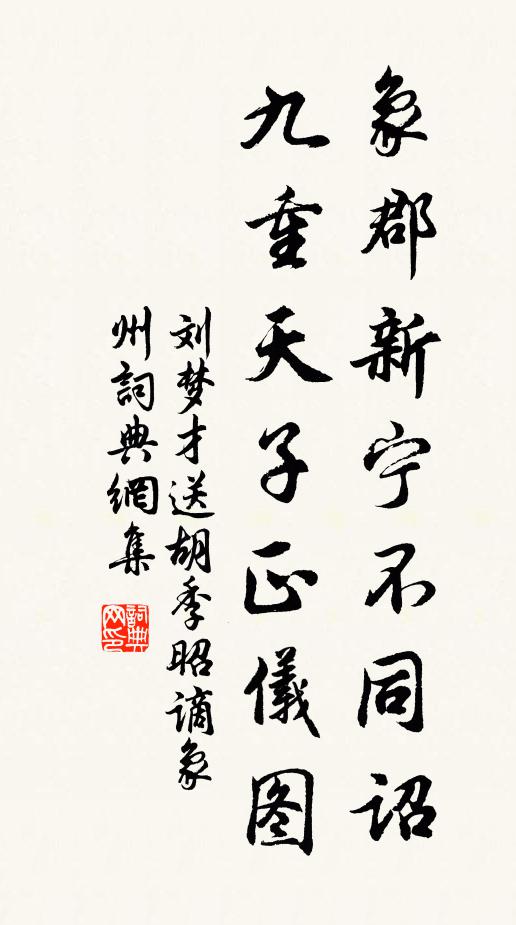 象郡新宁不同诏
九重天子正儀图
刘梦才送胡季昭谪象
州詞典網集
詞典
网印